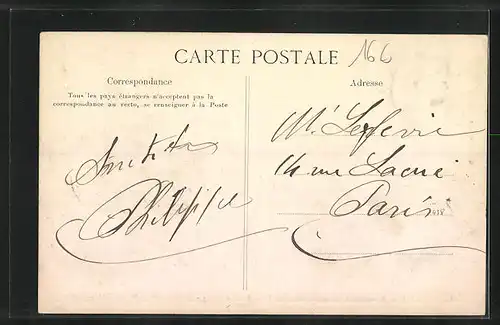 CARTE POSTALE
166
Correspondance
Tous les pays étrangers n'acceptent pas la
correspondance au recto, se renseigner à la Poste
Adresse
Mr Lefevre
14 rue
Paris
Philippe